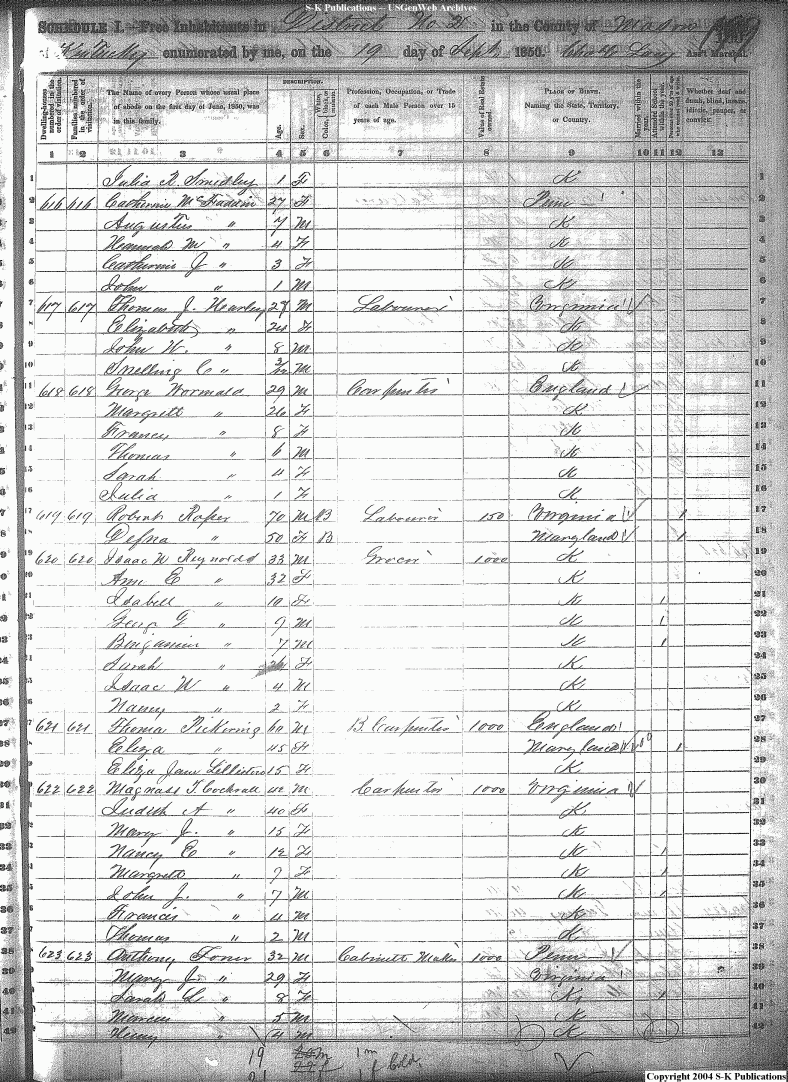 S-K Publications -- USGenWeb Archives
SCHEDULE I.—Free Inhabitants in District No 2 in the County of
Kentucky enumerated by me, on the 19 day of Sept 1850. Ass't Marshal.
Dwelling-houses numbered in the order of visitation.
Families numbered in the order of visitation.
The Name of every Person whose usual place of abode on the first day of June, 1850, was in this family.
DESCRIPTION.
Age.
Sex.
Color, White, black, or mulatto.
Profession, Occupation, or Trade of each Male Person over 15 years of age.
Value of Real Estate owned.
PLACE OF BIRTH.
Naming the State, Territory, or Country.
Married within the year.
Attended School within the year.
Whether deaf and dumb, blind, insane, idiotic, pauper, or convict.
1 2 3 4 5 6 7 8 9 10 11 12 13
1 Julia A. Smedley 1 F K
2 616 616 Catherine McFaddin 27 F Penn
3 Augustus " 7 M K
4 Hannah M " 4 F K
5 Catherine J " 3 F K
6 John " 1 M K
7 617 617 Thomas J. 27 M Labourer Virginia
8 Elizabeth " 24 F K
9 John W. " 8 M K
10 Snelling C " 3/12 M K
11 618 618 George Wormald 29 M Carpenter England
12 Margrett " 26 F K
13 Frances " 8 F K
14 Thomas " 6 M K
15 Sarah " 4 F K
16 Julia " 1 F K
17 619 619 Robert Roper 70 M B Labourer 150 Virginia 1
18 " 50 F B Maryland 1
19 620 620 Isaac W Reynolds 33 M Grocer 1000 K
20 Ann E " 32 F K
21 Isabell " 10 F K 1
22 Georg G " 9 M K 1
23 Benjamin " 7 M K 1
24 Sarah " F K
25 Isaac W " 4 M K
26 Nancy " 2 F K
27 621 621 Thomas Pickering 60 M B. Carpenter 1000 England
28 Eliza " 45 F Maryland 1
29 Eliza Jane 15 F K
30 622 622 Magnass T. Cockrall 42 M Carpenter 1000 Virginia
31 Judith A " 40 F K
32 Mary J. " 15 F K
33 Nancy E " 12 F K 1
34 Margrett " 9 F K 1
35 John J. " 7 M K 1
36 Francis " 4 M K
37 Thomas " 2 M K
38 623 623 Anthony Toner 32 M Cabinett Maker 1000 Penn
39 Mary J. " 29 F Virginia
40 Sarah L " 8 F K 1
41 Marcus " 5 M K
42 Henry " 4 M K
19 1 m
21 1 f Cold.
Copyright 2004 S-K Publications